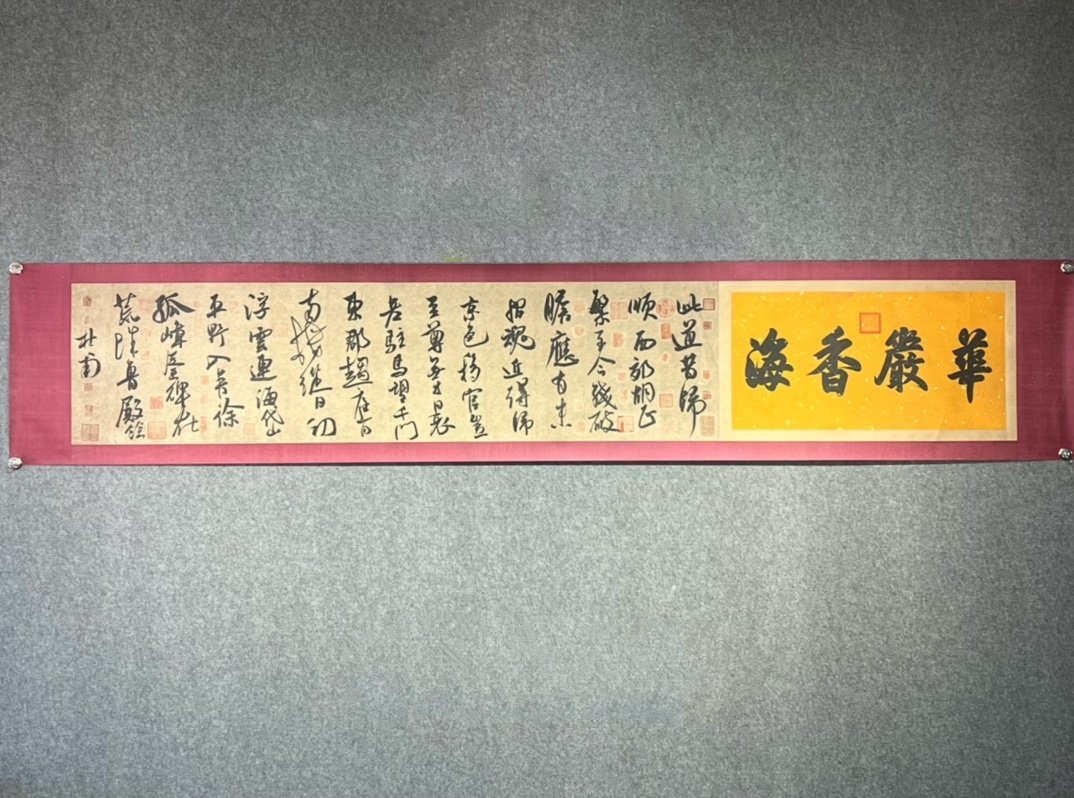 華嚴香海
此道昔歸
順西郊胡正
繁至今殘破
膽應有未
招魂近得歸
京邑移官豈
至尊無才日衰
老駐馬望千門
東郡趨庭日
南樓縱目初
浮雲連海岱
平野入青徐
孤嶂秦碑在
荒城魯殿餘